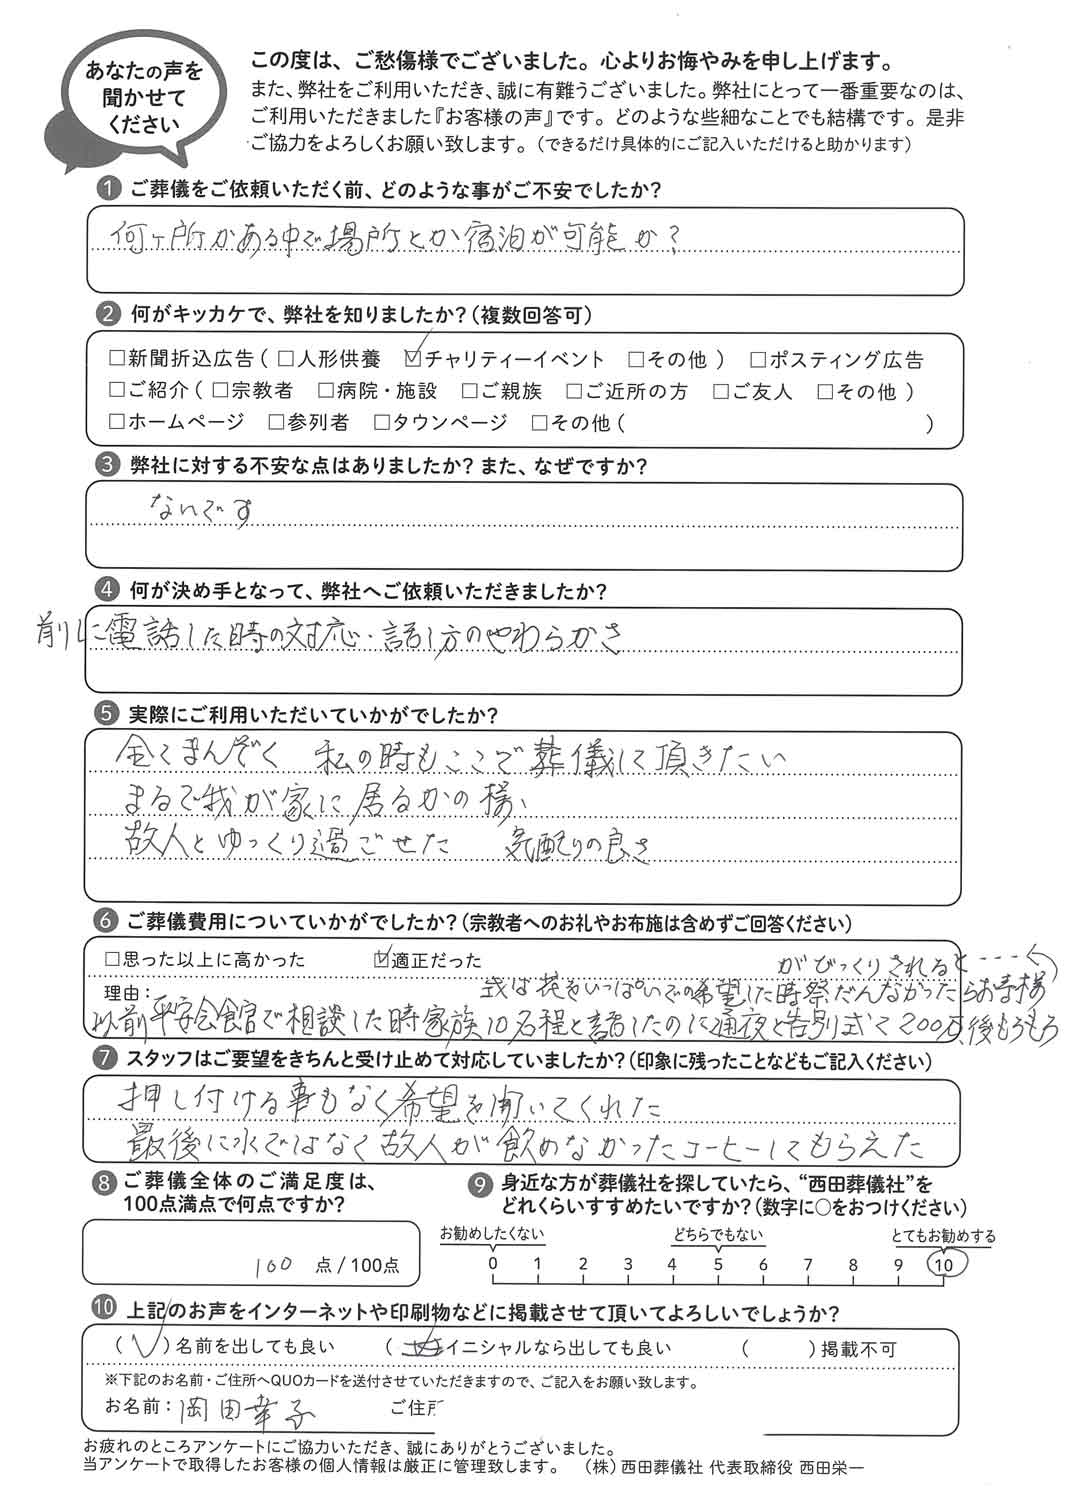 あなたの声を
聞かせて
ください
この度は、ご愁傷様でございました。心よりお悔やみを申し上げます。
また、弊社をご利用いただき、誠に有難うございました。弊社にとって一番重要なのは、
ご利用いただきました『お客様の声』です。どのような些細なことでも結構です。是非
ご協力をよろしくお願い致します。（できるだけ具体的にご記入いただけると助かります）
1 ご葬儀をご依頼いただく前、どのような事がご不安でしたか？
何ヶ所かある中で場所とか宿泊が可能か？
2 何がキッカケで、弊社を知りましたか？（複数回答可）
□新聞折込広告（ □人形供養 ☑チャリティーイベント □その他 ） □ポスティング広告
□ご紹介（ □宗教者 □病院・施設 □ご親族 □ご近所の方 □ご友人 □その他 ）
□ホームページ □参列者 □タウンページ □その他（ ）
3 弊社に対する不安な点はありましたか？また、なぜですか？
ないです
4 何が決め手となって、弊社へご依頼いただきましたか？
前に電話した時の対応・話し方のやわらかさ
5 実際にご利用いただいていかがでしたか？
全てまんぞく 私の時もここで葬儀して頂きたい
まるで我が家に居るかの様、
故人とゆっくり過ごせた 気配りの良さ
6 ご葬儀費用についていかがでしたか？（宗教者へのお礼やお布施は含めずご回答ください）
□思った以上に高かった ☑適正だった
がびっくりされると・・・・
理由： 式は花をいっぱいでの希望した時祭だんなかったらお寺様
以前平安会館で相談した時家族10名程と話したのに通夜と告別式で200万後もろもろ
7 スタッフはご要望をきちんと受け止めて対応していましたか？（印象に残ったことなどもご記入ください）
押し付ける事もなく希望を聞いてくれた
最後に水ではなく故人が飲めなかったコーヒーしてもらえた
8 ご葬儀全体のご満足度は、
100点満点で何点ですか？
100 点/100点
9 身近な方が葬儀社を探していたら、“西田葬儀社”を
どれくらいすすめたいですか？（数字に○をおつけください）
お勧めしたくない どちらでもない とてもお勧めする
0 1 2 3 4 5 6 7 8 9 10
10 上記のお声をインターネットや印刷物などに掲載させて頂いてよろしいでしょうか？
（ ✓ ）名前を出しても良い （ ）イニシャルなら出しても良い （ ）掲載不可
※下記のお名前・ご住所へQUOカードを送付させていただきますので、ご記入をお願い致します。
お名前：岡田幸子 ご住
お疲れのところアンケートにご協力いただき、誠にありがとうございました。
当アンケートで取得したお客様の個人情報は厳正に管理致します。 （株）西田葬儀社 代表取締役 西田栄一